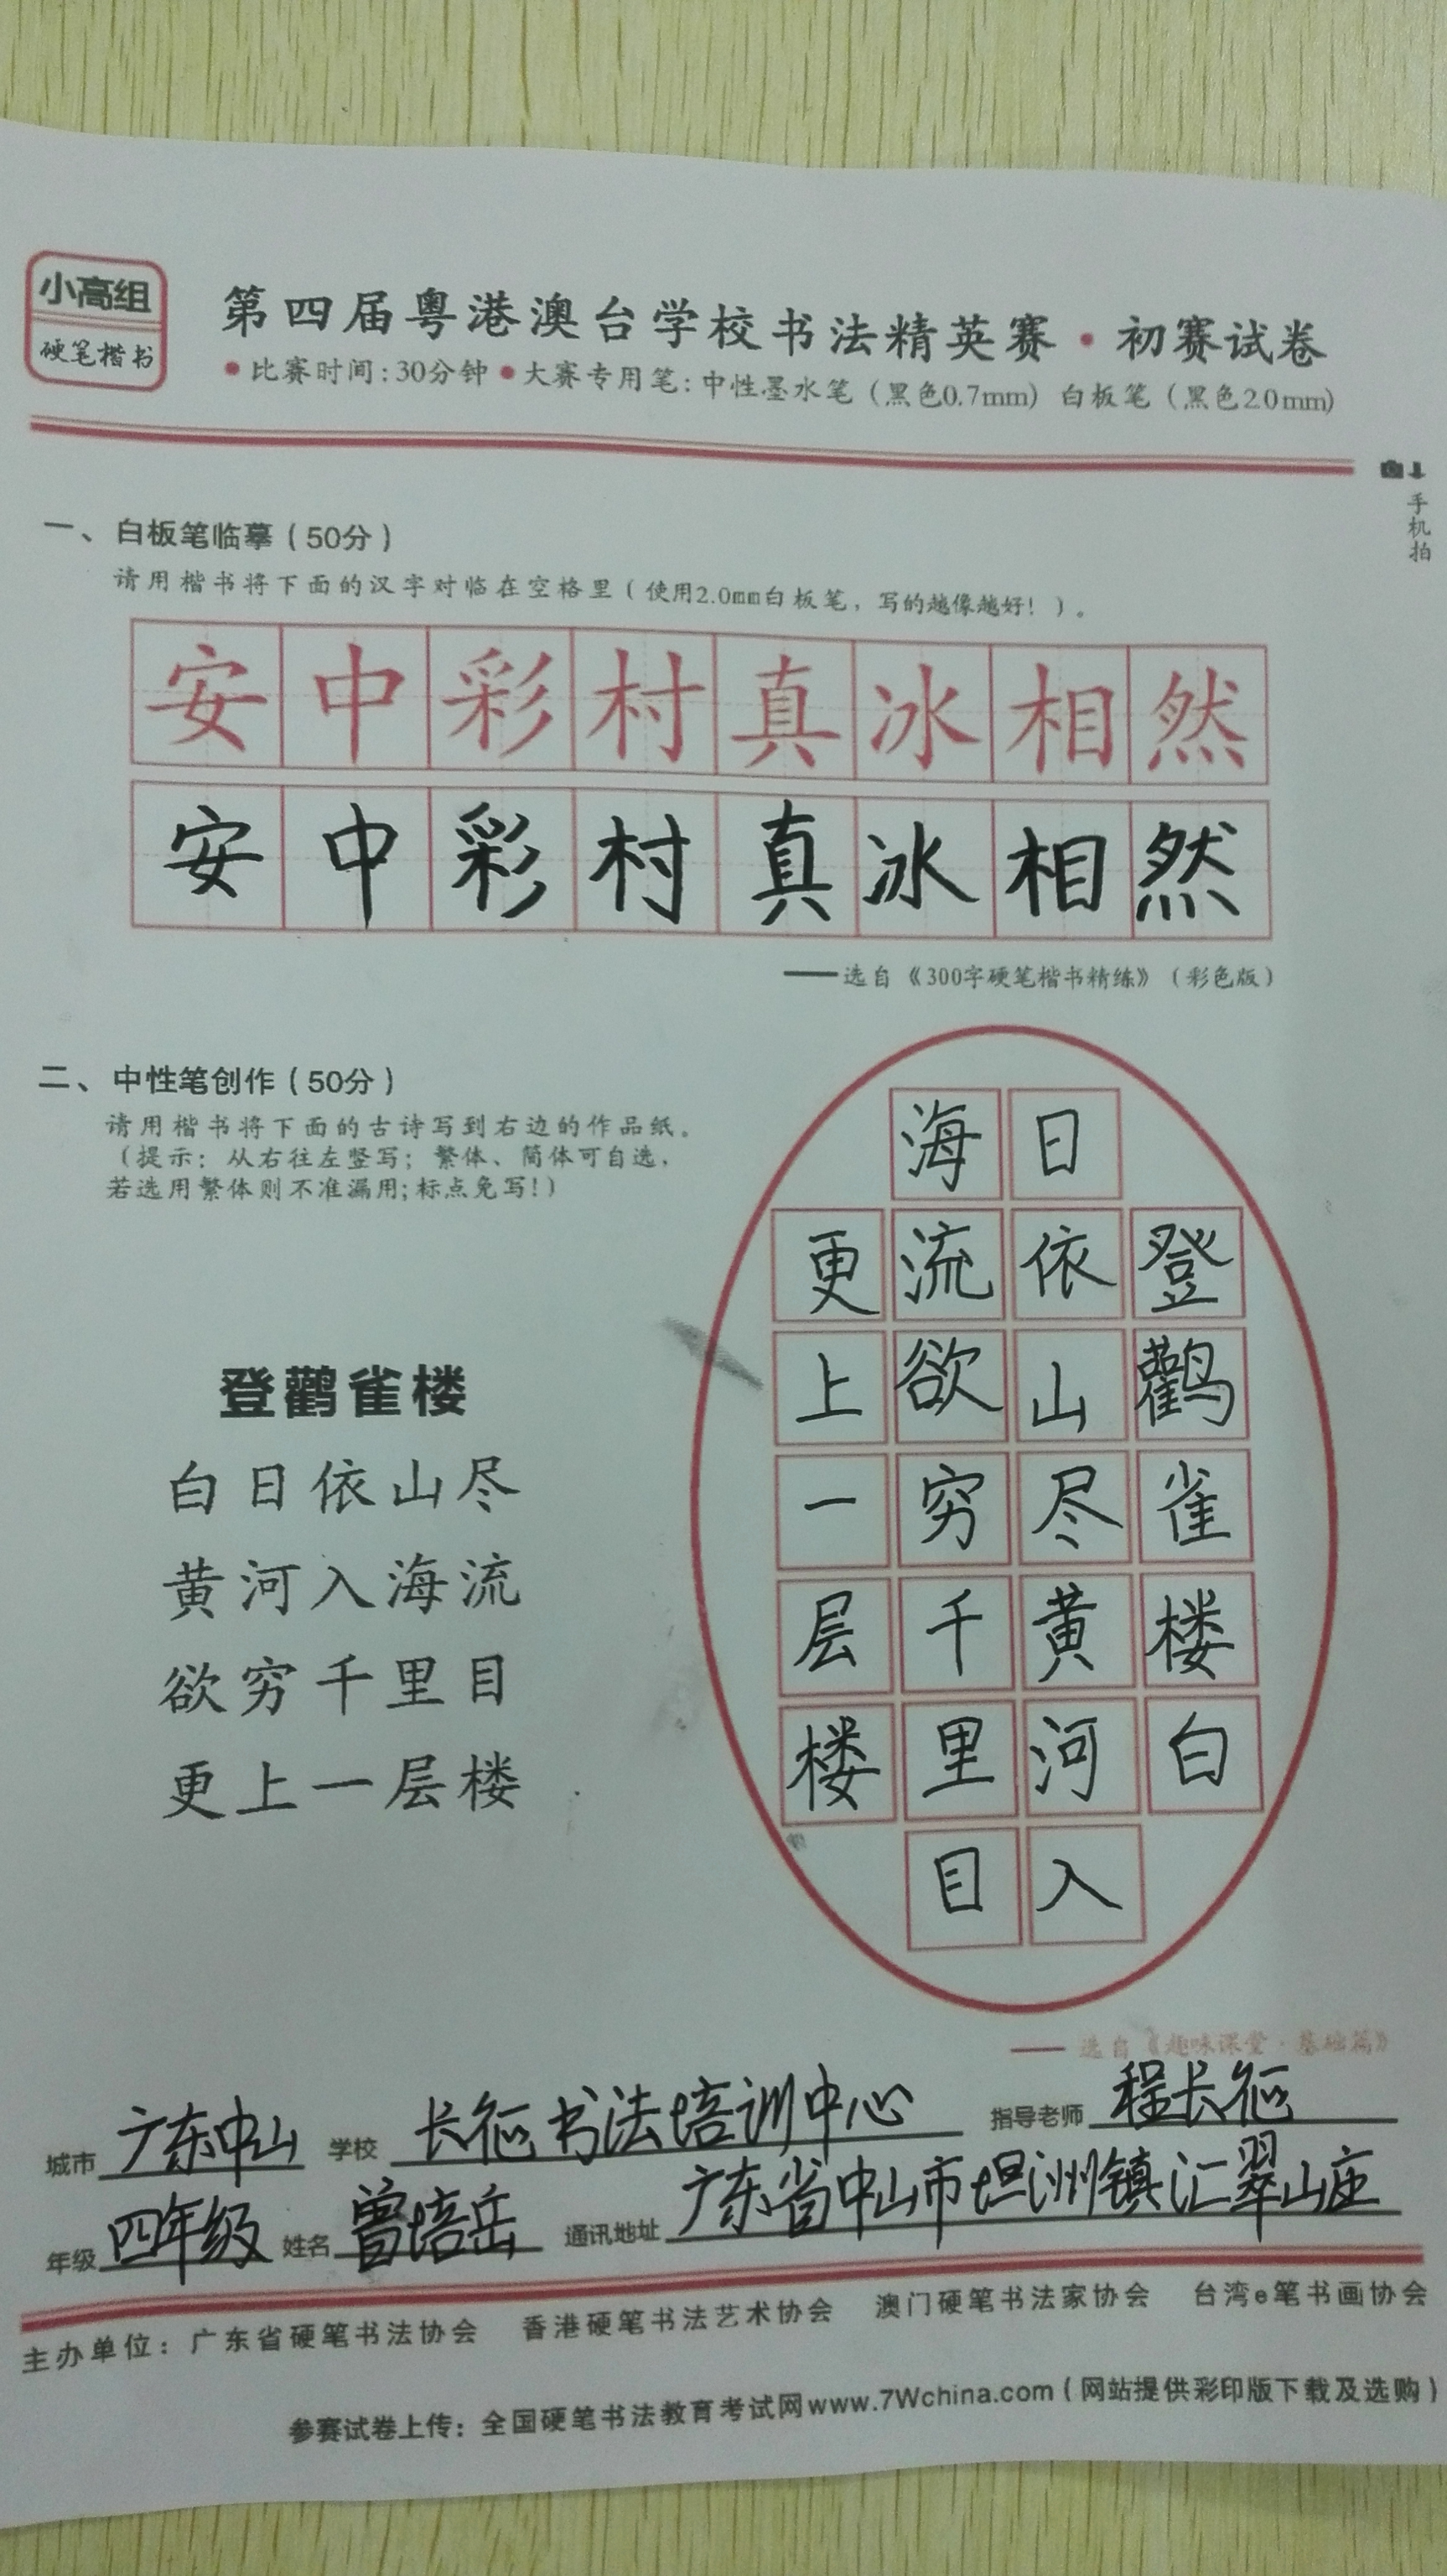 小高组
硬笔楷书
第四届粤港澳台学校书法精英赛·初赛试卷
●比赛时间:30分钟 ●大赛专用笔:中性墨水笔（黑色0.7mm）白板笔（黑色2.0mm）
手机拍
一、白板笔临摹（50分）
请用楷书将下面的汉字对临在空格里（使用2.0mm白板笔，写的越像越好！）。
安中彩村真冰相然
安中彩村真冰相然
——选自《300字硬笔楷书精练》（彩色版）
二、中性笔创作（50分）
请用楷书将下面的古诗写到右边的作品纸。
（提示：从右往左竖写；繁体、简体可自选，
若选用繁体则不准漏用;标点免写!）
登鹳雀楼
白日依山尽
黄河入海流
欲穷千里目
更上一层楼
登鹳雀楼白
日依山尽黄河入
海流欲穷千里目
更上一层楼
——选自《趣味课堂·基础篇》
城市 广东中山 学校 长征书法培训中心 指导老师 程长征
年级 四年级 姓名 曾培岳 通讯地址 广东省中山市坦洲镇汇翠山庄
主办单位：广东省硬笔书法协会 香港硬笔书法艺术协会 澳门硬笔书法家协会 台湾e笔书画协会
参赛试卷上传：全国硬笔书法教育考试网www.7Wchina.com（网站提供彩印版下载及选购）